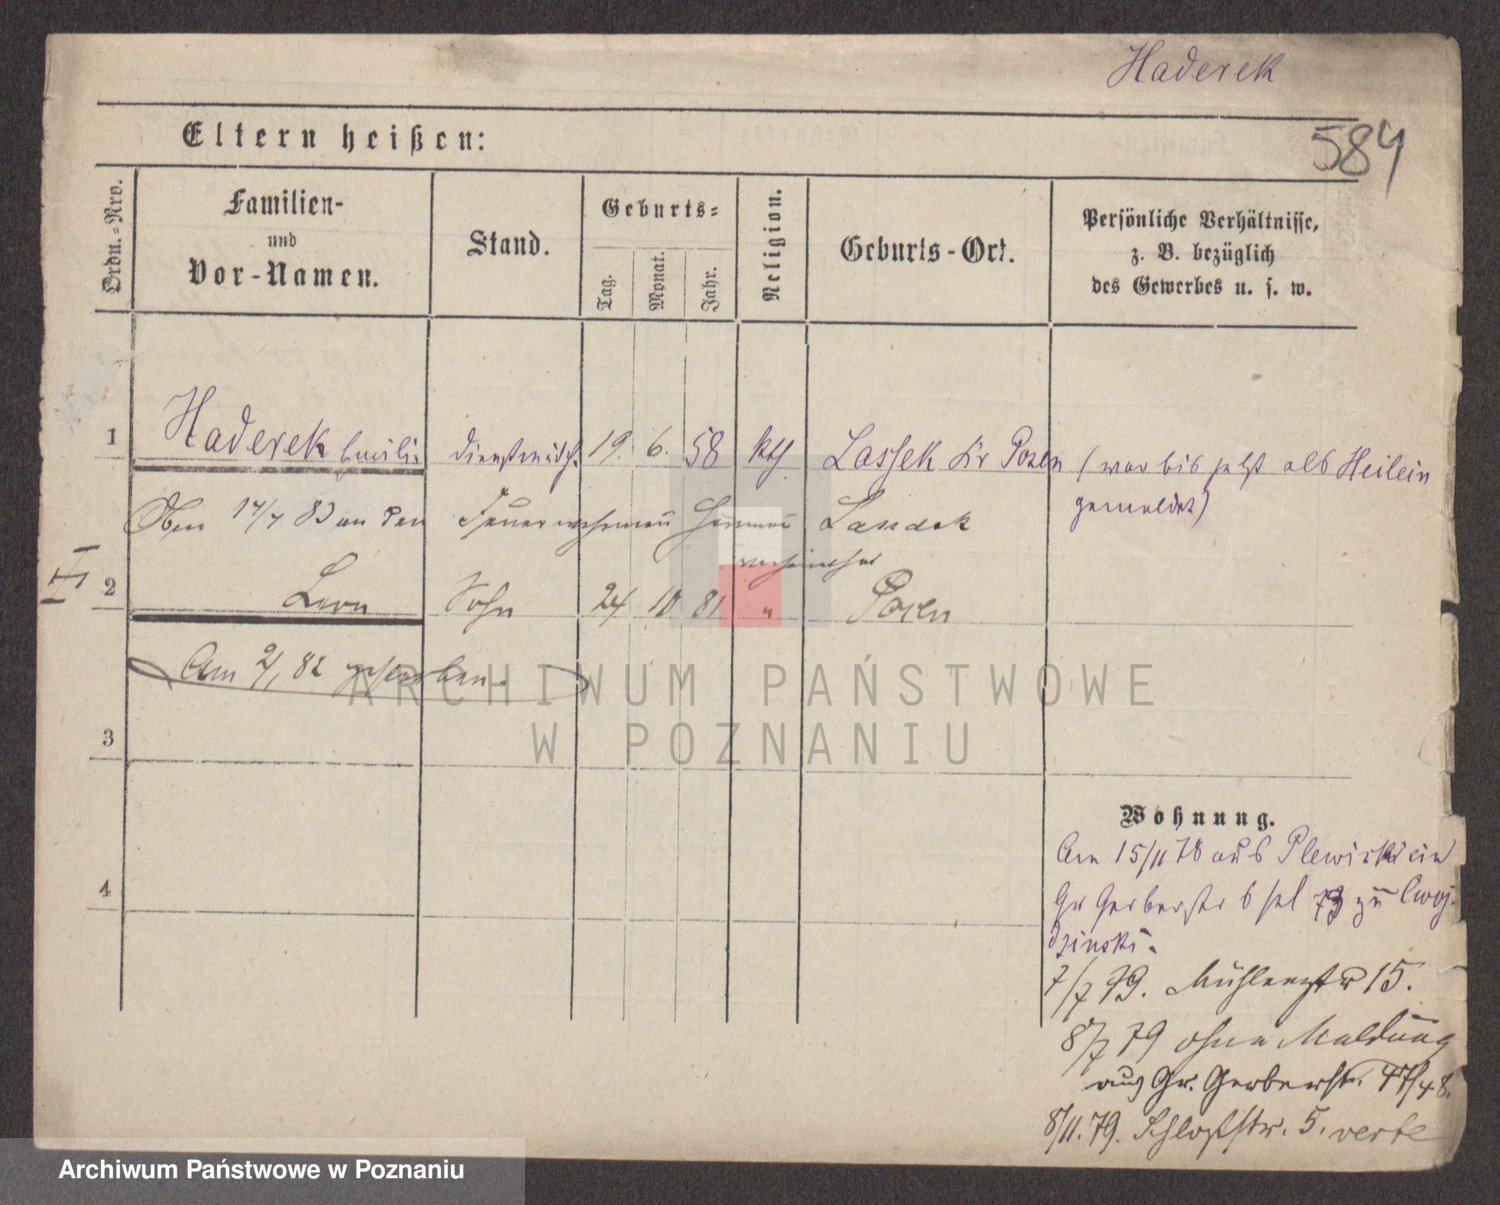 Haderek
584
Eltern heißen:
Ordn.=Nro.
Familien-
und
Vor-Namen.
Stand.
Geburts=
Tag.
Monat.
Jahr.
Religion.
Geburts-Ort.
Persönliche Verhältnisse,
z. B. bezüglich
des Gewerbes u. s. w.
1 Haderek Emilie Dienstmdch. 19. 6. 58 kth Lassek Kr Posen (war bis jetzt als Heilein
gemeldet)
17/7 83 an den Feuerwehrmann
verheirathet
2 Leon Sohn 24 10 81 " Posen
Am 2/1 82 gestorben.
3
4
Wohnung.
Am 15/11 78 aus Plewisk ein
Gr Gerberstr 6 sel 73 zu Cwoj-
dzinski.
7/7 79. Mühlenstr 15.
8/7 79 ohne Meldung
aus Gr. Gerberstr. 47/48.
8/11. 79. Schloßstr. 5. verte
ARCHIWUM PAŃSTWOWE
W POZNANIU
Archiwum Państwowe w Poznaniu